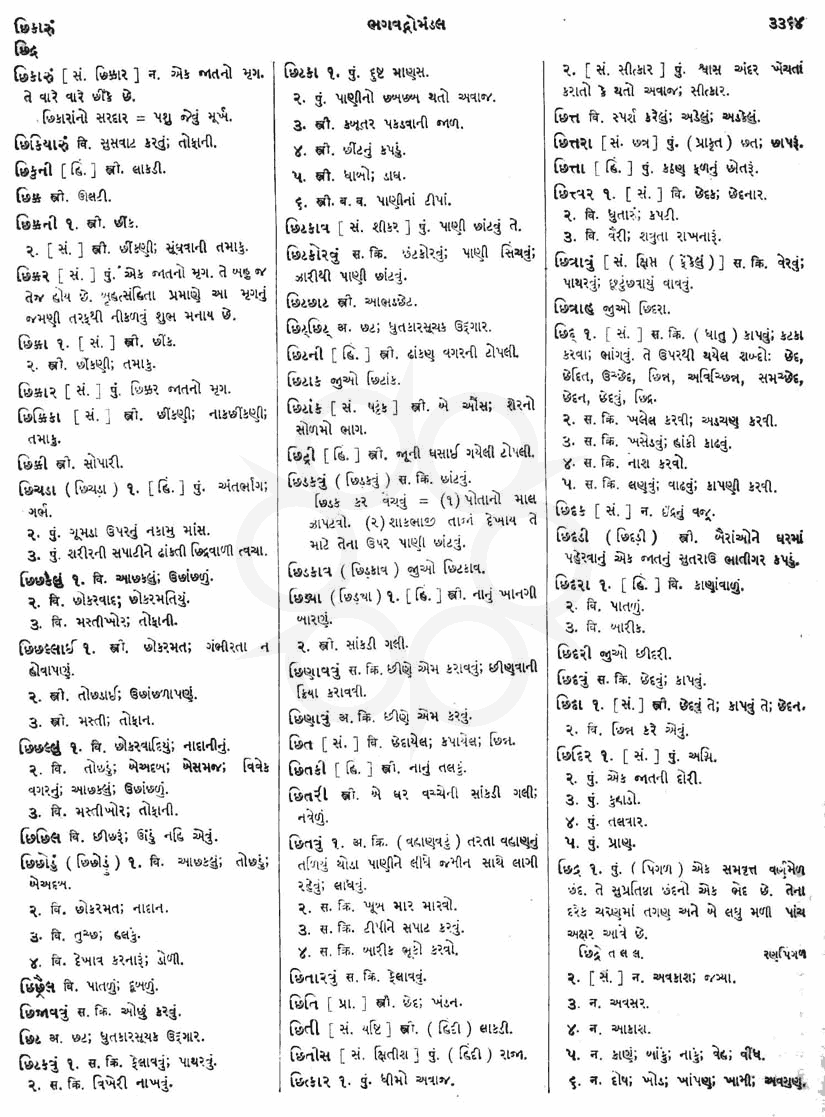 છિકારું
છિદ્ર
ભગવદ્ગોમંડલ
૩૩૬૪
છિકારું [ સં. છિક્કાર ] ન. એક જાતનો મૃગ.
તે વારે વારે છીંકે છે.
છિકારાંનો સરદાર = પશુ જેવું મૂર્ખ.
છિકિયારું વિ. સુસવાટ કરતું; તોફાની.
છિકુની [ હિં. ] સ્ત્રી. લાકડી.
છિક્ક સ્ત્રી. ઊલટી.
છિક્કની ૧. સ્ત્રી. છીંક.
૨. [ સં. ] સ્ત્રી. છીંકણી; સૂંઘવાની તમાકુ.
છિક્કર [ સં. ] પું. એક જાતનો મૃગ. તે બહુ જ
તેજ હોય છે. બૃહત્સંહિતા પ્રમાણે આ મૃગનું
જમણી તરફથી નીકળવું શુભ મનાય છે.
છિક્કા ૧. [ સં. ] સ્ત્રી. છીંક.
૨. સ્ત્રી. છીંકણી; તમાકુ.
છિક્કાર [ સં. ] પું. છિક્કર જાતનો મૃગ.
છિક્કિકા [ સં. ] સ્ત્રી. છીંકણી; નાકછીંકણી;
તમાકુ.
છિક્કી સ્ત્રી. સોપારી.
છિચડા ( છિચડા ) ૧. [ હિં. ] પું. અંતર્ભાગ;
ગર્ભ.
૨. પું. ગૂમડા ઉપરનું નકામું માંસ.
૩. પું. શરીરની સપાટીને ઢાંકતી છિદ્રવાળી ત્વચા.
છિછકેલું ૧. વિ. આછકલું; ઉછાંછળું.
૨. વિ. છોકરવાદ; છોકરમતિયું.
૩. વિ. મસ્તીખોર; તોફાની.
છિછલ્લાઈ ૧. સ્ત્રી. છોકરમત; ગંભીરતા ન
હોવાપણું.
૨. સ્ત્રી. તોછડાઈ; ઉછાંછળાપણું.
૩. સ્ત્રી. મસ્તી; તોફાન.
છિછલ્લું ૧. વિ. છોકરવાદિયું; નાદાનીનું.
૨. વિ. તોછડું; બેઅદબ; બેસમજ; વિવેક
વગરનું; આછકલું; ઉછાંછળું.
૩. વિ. મસ્તીખોર; તોફાની.
છિછિલ વિ. છીછરૂં; ઊંડું નહિ એવું.
છિછોડું ( છિછોડું ) ૧. વિ. આછકલું; તોછડું;
બેઅદબ.
૨. વિ. છોકરમત; નાદાન.
૩. વિ. તુચ્છ; હલકું.
૪. વિ. દેખાવ કરનારૂં; ડોળી.
વિ. પાતળું; દૂબળું.
છિજાવવું સ. ક્રિ. ઓછું કરવું.
છિટ અ. છટ; ધુતકારસૂચક ઉદ્ગાર.
છિટકવું ૧. સ. ક્રિ. ફેલાવવું; પાથરવું.
૨. સ. ક્રિ. વિખેરી નાખવું.
છિટકા ૧. પું. દુષ્ટ માણસ.
૨. પું. પાણીનો છબછબ થતો અવાજ.
૩. સ્ત્રી. કબૂતર પકડવાની જાળ.
૪. સ્ત્રી. છીંટનું કપડું.
૫. સ્ત્રી. ધાબો; ડાઘ.
૬. સ્ત્રી. બ. વ. પાણીનાં ટીપાં.
છિટકાવ [ સં. શીકર ] પું. પાણી છાંટવું તે.
છિટકોરવું સ. ક્રિ. છંટકોરવું; પાણી સિંચવું;
ઝારીથી પાણી છાંટવું.
છિટછાટ સ્ત્રી. આભડછેટ.
છિટ્છિટ્ અ. છટ; ધુતકારસૂચક ઉદ્ગાર.
છિટની [ હિં. ] સ્ત્રી. ઢાંકણ વગરની ટોપલી.
છિટાક જુઓ છિટાંક.
છિટાંક [ સં. ષટ્ંક ] સ્ત્રી. બે ઔંસ; શેરનો
સોળમો ભાગ.
છિટ્ટી [ હિં. ] સ્ત્રી. જૂની ઘસાઈ ગયેલી ટોપલી.
છિડકવું ( છિડકવું ) સ. ક્રિ. છાંટવું.
છિડક કર વેચવું = (૧) પોતાનો માલ
ઝાપટવો. (૨) શાકભાજી તાજાં દેખાય તે
માટે તેના ઉપર પાણી છાંટવું.
છિડકાવ ( છિડકાવ ) જુઓ છિટકાવ.
છિડ્યા ( છિડ્યા ) ૧. [ હિં. ] સ્ત્રી. નાનું ખાનગી
બારણું.
૨. સ્ત્રી. સાંકડી ગલી.
છિણાવવું સ. ક્રિ. છીણે એમ કરાવવું; છીણવાની
ક્રિયા કરાવવી.
છિણાવું અ. ક્રિ. છીણે એમ કરવું.
છિત [ સં. ] વિ. છેદાયેલ; કપાયેલ; છિન્ન.
છિતકી [ હિં. ] સ્ત્રી. નાનું તલકું.
છિતરી સ્ત્રી. બે ઘર વચ્ચેની સાંકડી ગલી;
નવેળું.
છિતવું ૧. અ. ક્રિ. ( વહાણવટું ) તરતા વહાણનું
તળિયું થોડા પાણીને લીધે જમીન સાથે લાગી
રહેવું; લાધવું.
૨. સ. ક્રિ. ખૂબ માર મારવો.
૩. સ. ક્રિ. ટીપીને સપાટ કરવું.
૪. સ. ક્રિ. બારીક ભૂકો કરવો.
છિતારવું સ. ક્રિ. ફેલાવવું.
છિતિ [ પ્રા. ] સ્ત્રી. છેદ; ખંડન.
છિતી [ સં. યષ્ટિ ] સ્ત્રી. ( હિંદી ) લાકડી.
છિતીસ [ સં. ક્ષિતીશ ] પું. ( હિંદી ) રાજા.
છિત્કાર ૧. પું. ધીમો અવાજ.
૨. [ સં. સીત્કાર ] પું. શ્વાસ અંદર ખેંચતાં
કરાતો કે થતો અવાજ; સીત્કાર.
છિત્ત વિ. સ્પર્શ કરેલું; અડેલું; અડકેલું.
છિત્તરા [ સં. છત્ર ] પું. ( પ્રાકૃત ) છત; છાપરૂં.
છિત્તા [ હિં. ] પું. કઠણ ફળનું છોતરૂં.
છિત્ત્વર ૧. [ સં. ] વિ. છેદક; છેદનાર.
૨. વિ. ધુતારું; કપટી.
૩. વિ. વૈરી; શત્રુતા રાખનારૂં.
છિત્રાવું [ સં. ક્ષિપ્ત ( ફેંકેલું ) ] સ. ક્રિ. વેરવું;
પાથરવું; છૂટુંછવાયું વાવવું.
છિત્રાહ જુઓ છિદરા.
છિદ્ ૧. [ સં. ] સ. ક્રિ. ( ધાતુ ) કાપવું; કટકા
કરવા; ભાંગવું. તે ઉપરથી થયેલ શબ્દોઃ છેદ,
છેદિત, ઉચ્છેદ, છિન્ન, અવિચ્છિન્ન, સમચ્છેદ,
છેદન, છેદવું, છિદ્ર.
૨. સ. ક્રિ. ખલેલ કરવી; અડચણ કરવી.
૩. સ. ક્રિ. ખસેડવું; હાંકી કાઢવું.
૪. સ. ક્રિ. નાશ કરવો.
૫. સ. ક્રિ. લણવું; વાઢવું; કાપણી કરવી.
છિદક [ સં. ] ન. ઈંદ્રનું વજ્ર.
છિદડી ( છિદડી ) સ્ત્રી. બૈરાંઓને ઘરમાં
પહેરવાનું એક જાતનું સુતરાઉ ભાતીગર કપડું.
છિદરા ૧. [ હિં. ] વિ. કાણાંવાળું.
૨. વિ. પાતળું.
૩. વિ. બારીક.
છિદરી જુઓ છીદરી.
છિદવું સ. ક્રિ. છેદવું; કાપવું.
છિદા ૧. [ સં. ] સ્ત્રી. છેદવું તે; કાપવું તે; છેદન.
૨. વિ. છિન્ન કરે એવું.
છિદિર ૧. [ સં. ] પું. અગ્નિ.
૨. પું. એક જાતની દોરી.
૩. પું. કુહાડો.
૪. પું. તલવાર.
૫. પું. પ્રાણ.
છિદ્ર ૧. પું. ( પિંગળ ) એક સમવૃત્ત વર્ણમેળ
છંદ. તે સુપ્રતિષ્ઠા છંદનો એક ભેદ છે. તેના
દરેક ચરણમાં તગણ અને બે લઘુ મળી પાંચ
અક્ષર આવે છે.
છિદ્રે ત લ લ. રણપિંગળ
૨. [ સં. ] ન. અવકાશ; જગ્યા.
૩. ન. અવસર.
૪. ન. આકાશ.
૫. ન. કાણું; બાંકું; નાકું; વેહ; વીંધ.
૬. ન. દોષ; ખોડ; ખાંપણ; ખામી; અવગુણ.